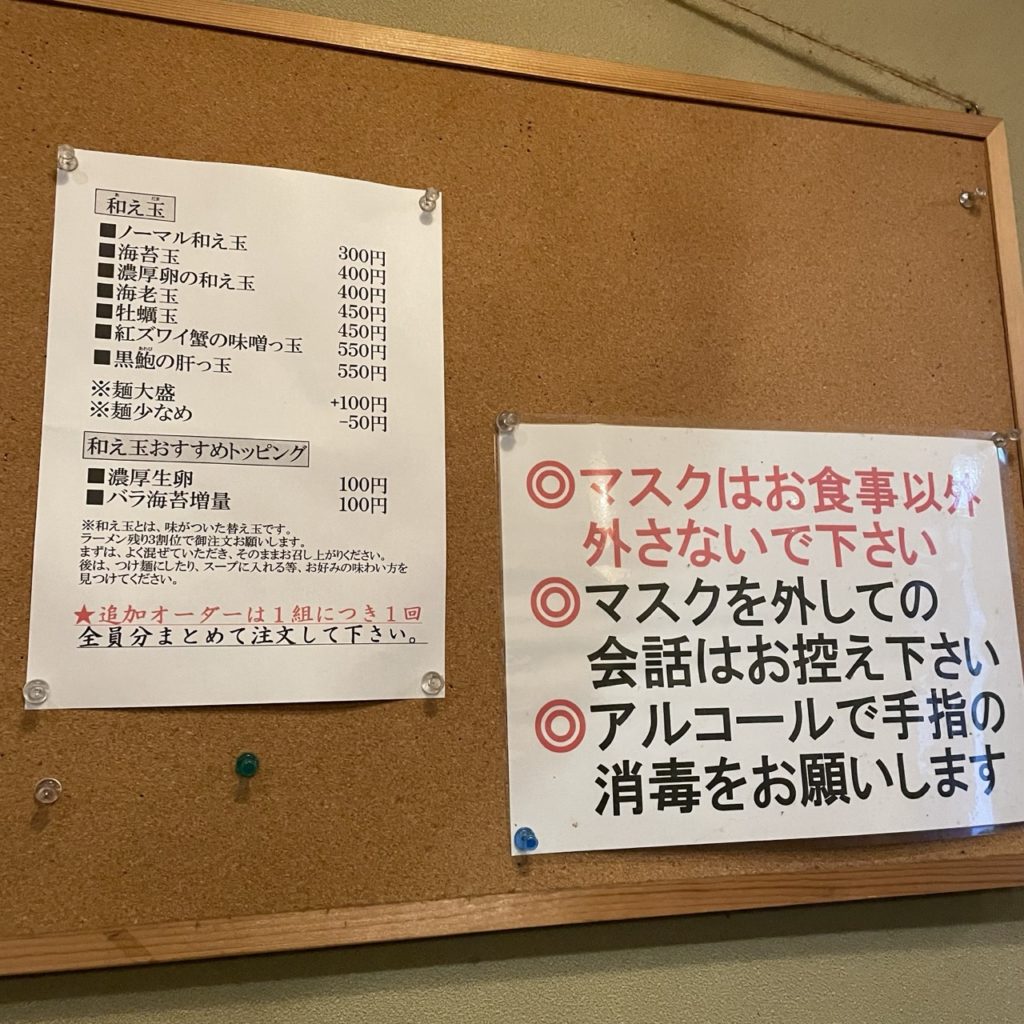 和え玉
■ノーマル和え玉 300円
■海苔玉 400円
■濃厚卵の和え玉 400円
■海老玉 450円
■牡蠣玉 450円
■紅ズワイ蟹の味噌っ玉 550円
■黒鮑の肝っ玉 550円
※麺大盛 +100円
※麺少なめ -50円
和え玉おすすめトッピング
■濃厚生卵 100円
■バラ海苔増量 100円
※和え玉とは、味がついた替え玉です。
ラーメン残り3割位で御注文お願いします。
まずは、よく混ぜていただき、そのままお召し上がりください。
後は、つけ麺にしたり、スープに入れる等、お好みの味わい方を
見つけてください。
★追加オーダーは1組につき1回
全員分まとめて注文して下さい。
◎マスクはお食事以外
外さないで下さい
◎マスクを外しての
会話はお控え下さい
◎アルコールで手指の
消毒をお願いします